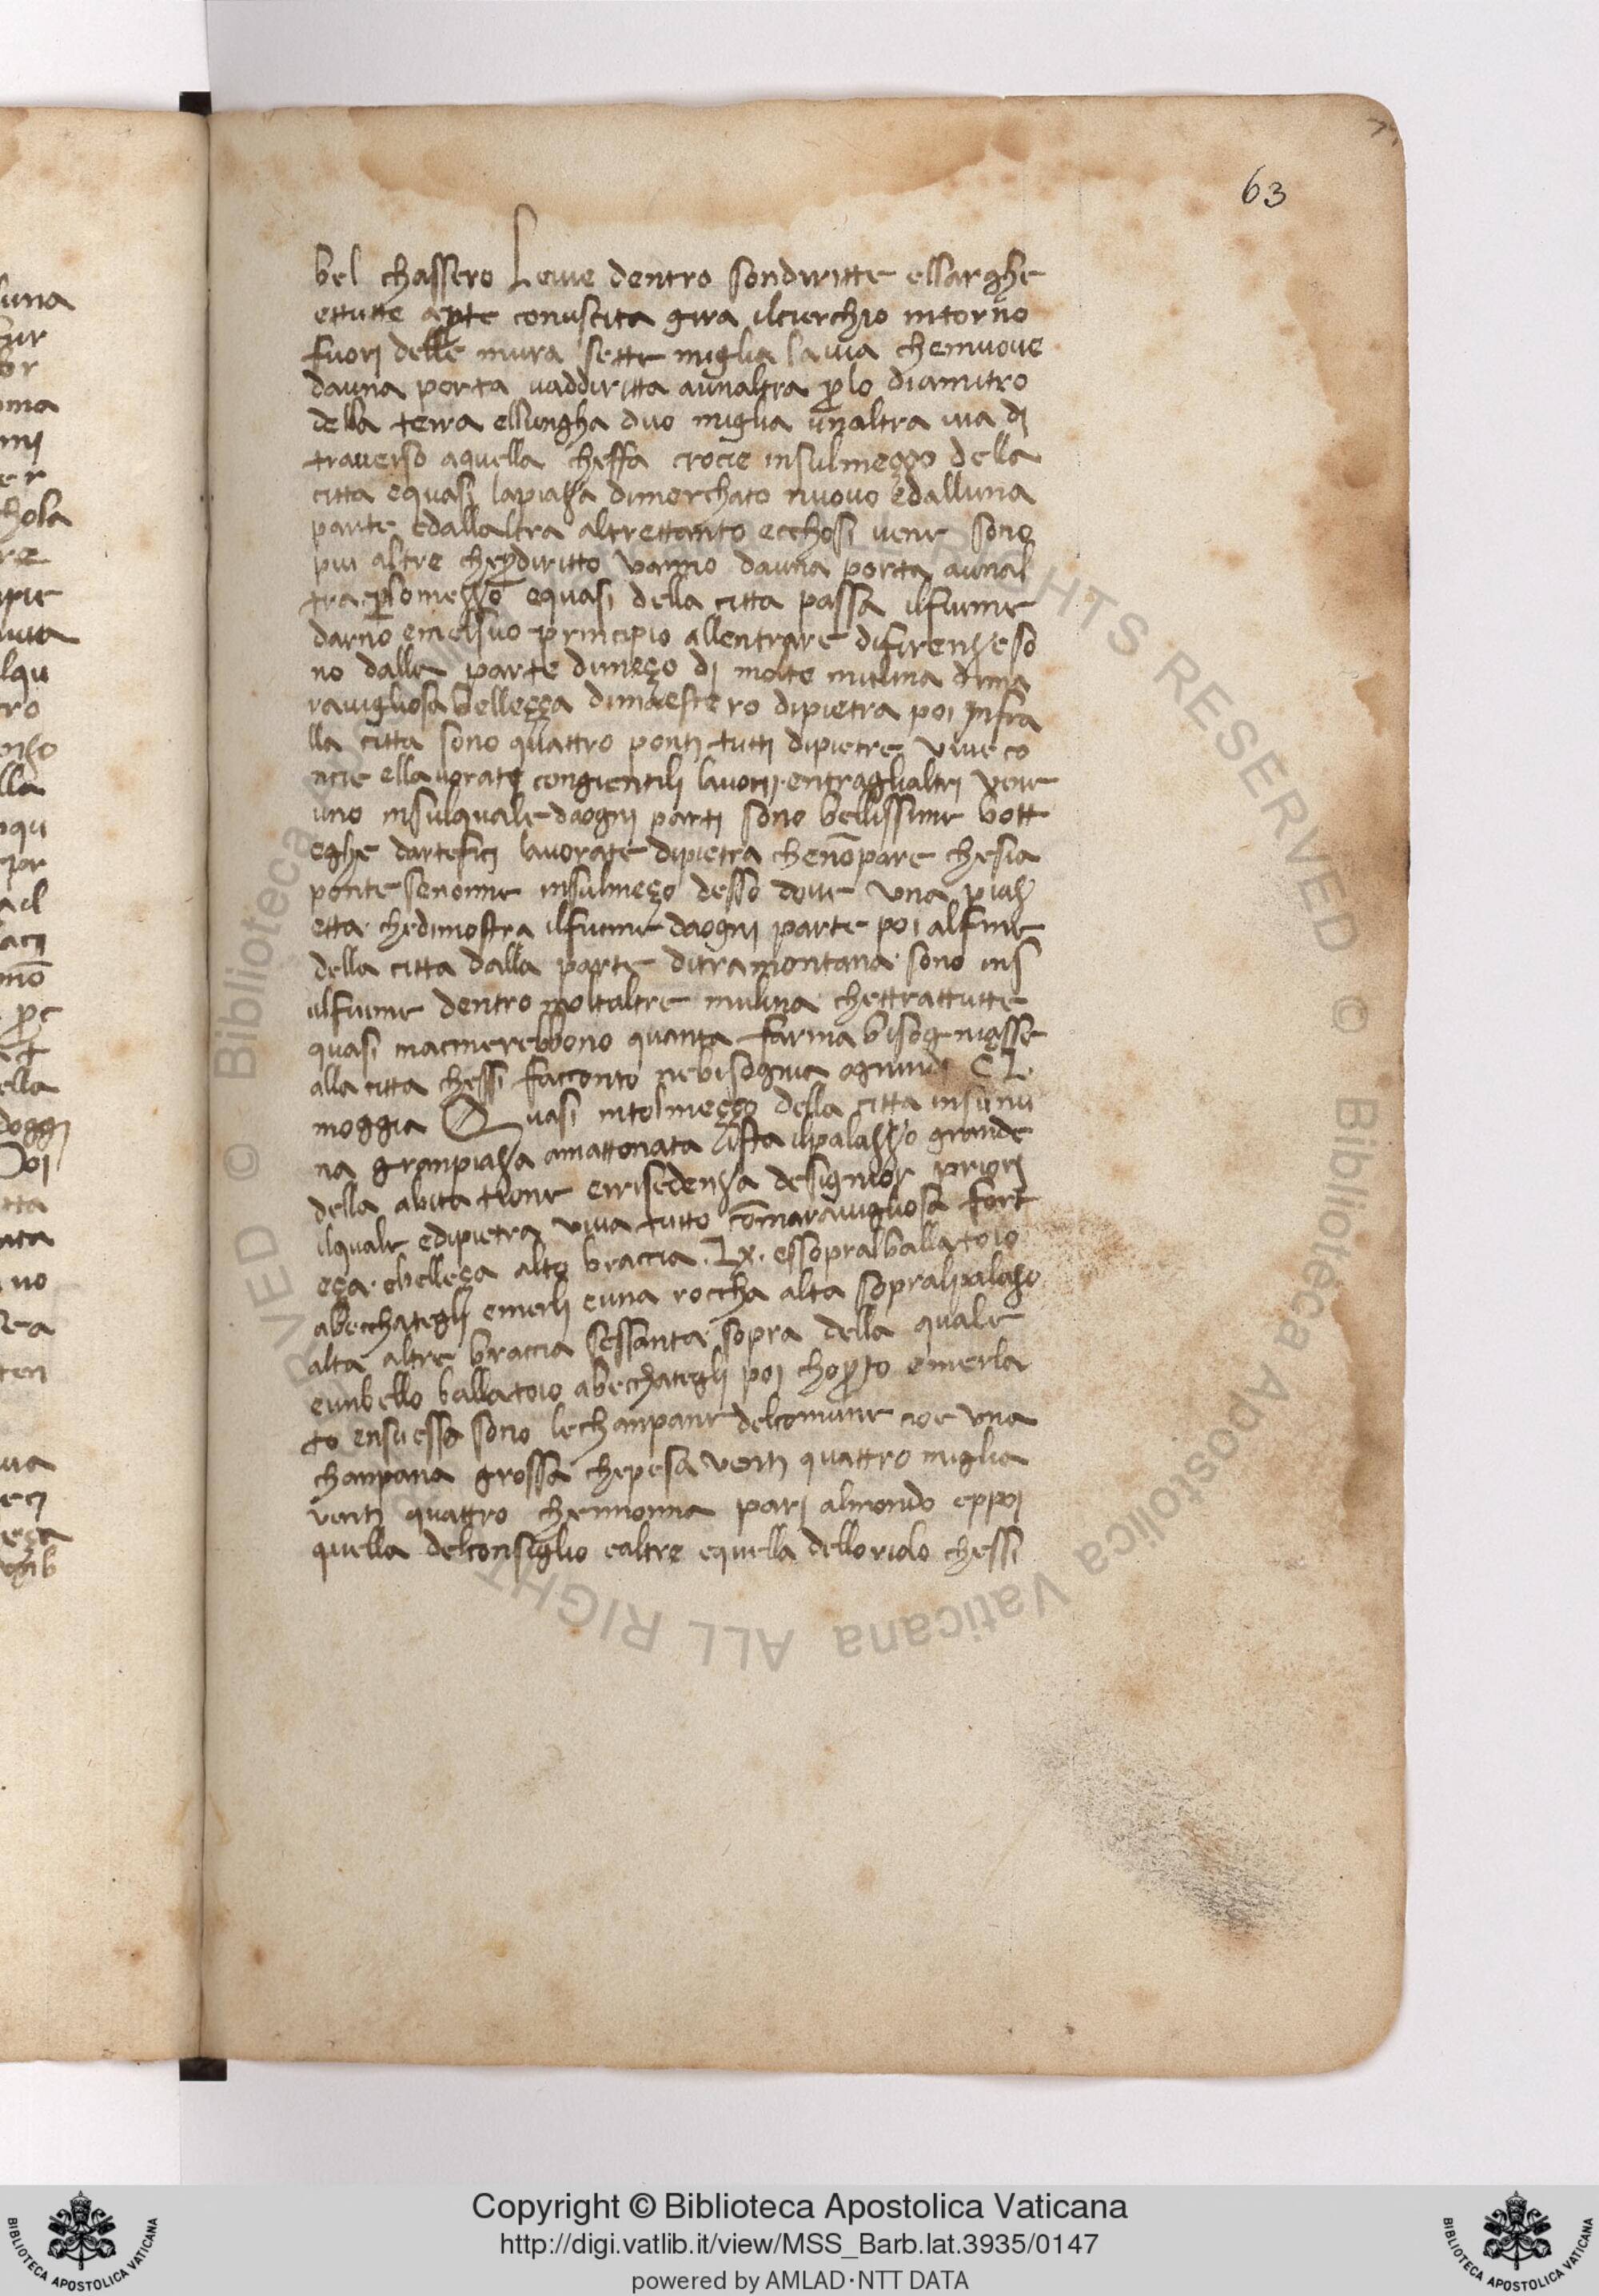 63
bel chassero Levie dentro sondiritte ellarghe
ettutte apte conuscita gira ilcierchio intorno
fuori delle mura sette miglia lavia chemuove
dauna porta vaddiritta aunaltra p̱lo diamitro
della terra ellungha duo miglia unaltra via di
traverso aquella cheffa crocie insulmeçço della
citta equasi lapiaza dimerchato nuovo edalluna
parte edallaltra altrettanto ecchosi vene sono
piu altre chep̱diritto vanno dauna porta aunal
tra p̱lomezzo equasi della citta passa ilfiume
darno enelsuo principio allentrare difirenzeso
no dalle parte dimeço di molte mulina dima
ravigliosa belleçça dimaestero dipietra poi infra
lla citta sono quattro ponti tutti dipietre vive co
ncie ellavorate congientili lavorii entraglialtri vene
uno insulquale daogni parti sono bellissime bott
eghe dartefici lavorate dipietra chenōpare chesia
ponte senonne insulmeço desso dove una piaz
etta chedimostra ilfiume daogni parte poi alfine
della citta dalla parte ditramontana sono ins
ulfiume dentro moltaltre mulina chettrattutte
quasi macinerebbono quanta farina bisogniasse
alla citta chessi facconto nebisognia ognindi CL.
moggia Quasi intolmeçço della citta insunu
na granpiaza amattonata sista ilpalazzo grande
della abitatione errisedenza designior priori
ilquale edipietra viva tutto cōmaravigliosa fort
eça ebelleça alto braccia .Lx. essopralballatoio
abecchategli emerli euna roccha alta sopralpalazo
alta altre braccia sessanta sopra della quale
eunbello ballatoio abechategli poi chop̱to emerla
to ensuessa sono lechanpane delcomune cioe una
chanpana grossa chepesa venti quattro miglia
venti quattro chennonna pari almondo eppoi
quella delconsiglio ealtre equella delloriolo chessi
Copyright © Biblioteca Apostolica Vaticana
http://digi.vatlib.it/view/MSS_Barb.lat.3935/0147
powered by AMLAD·NTT DATA